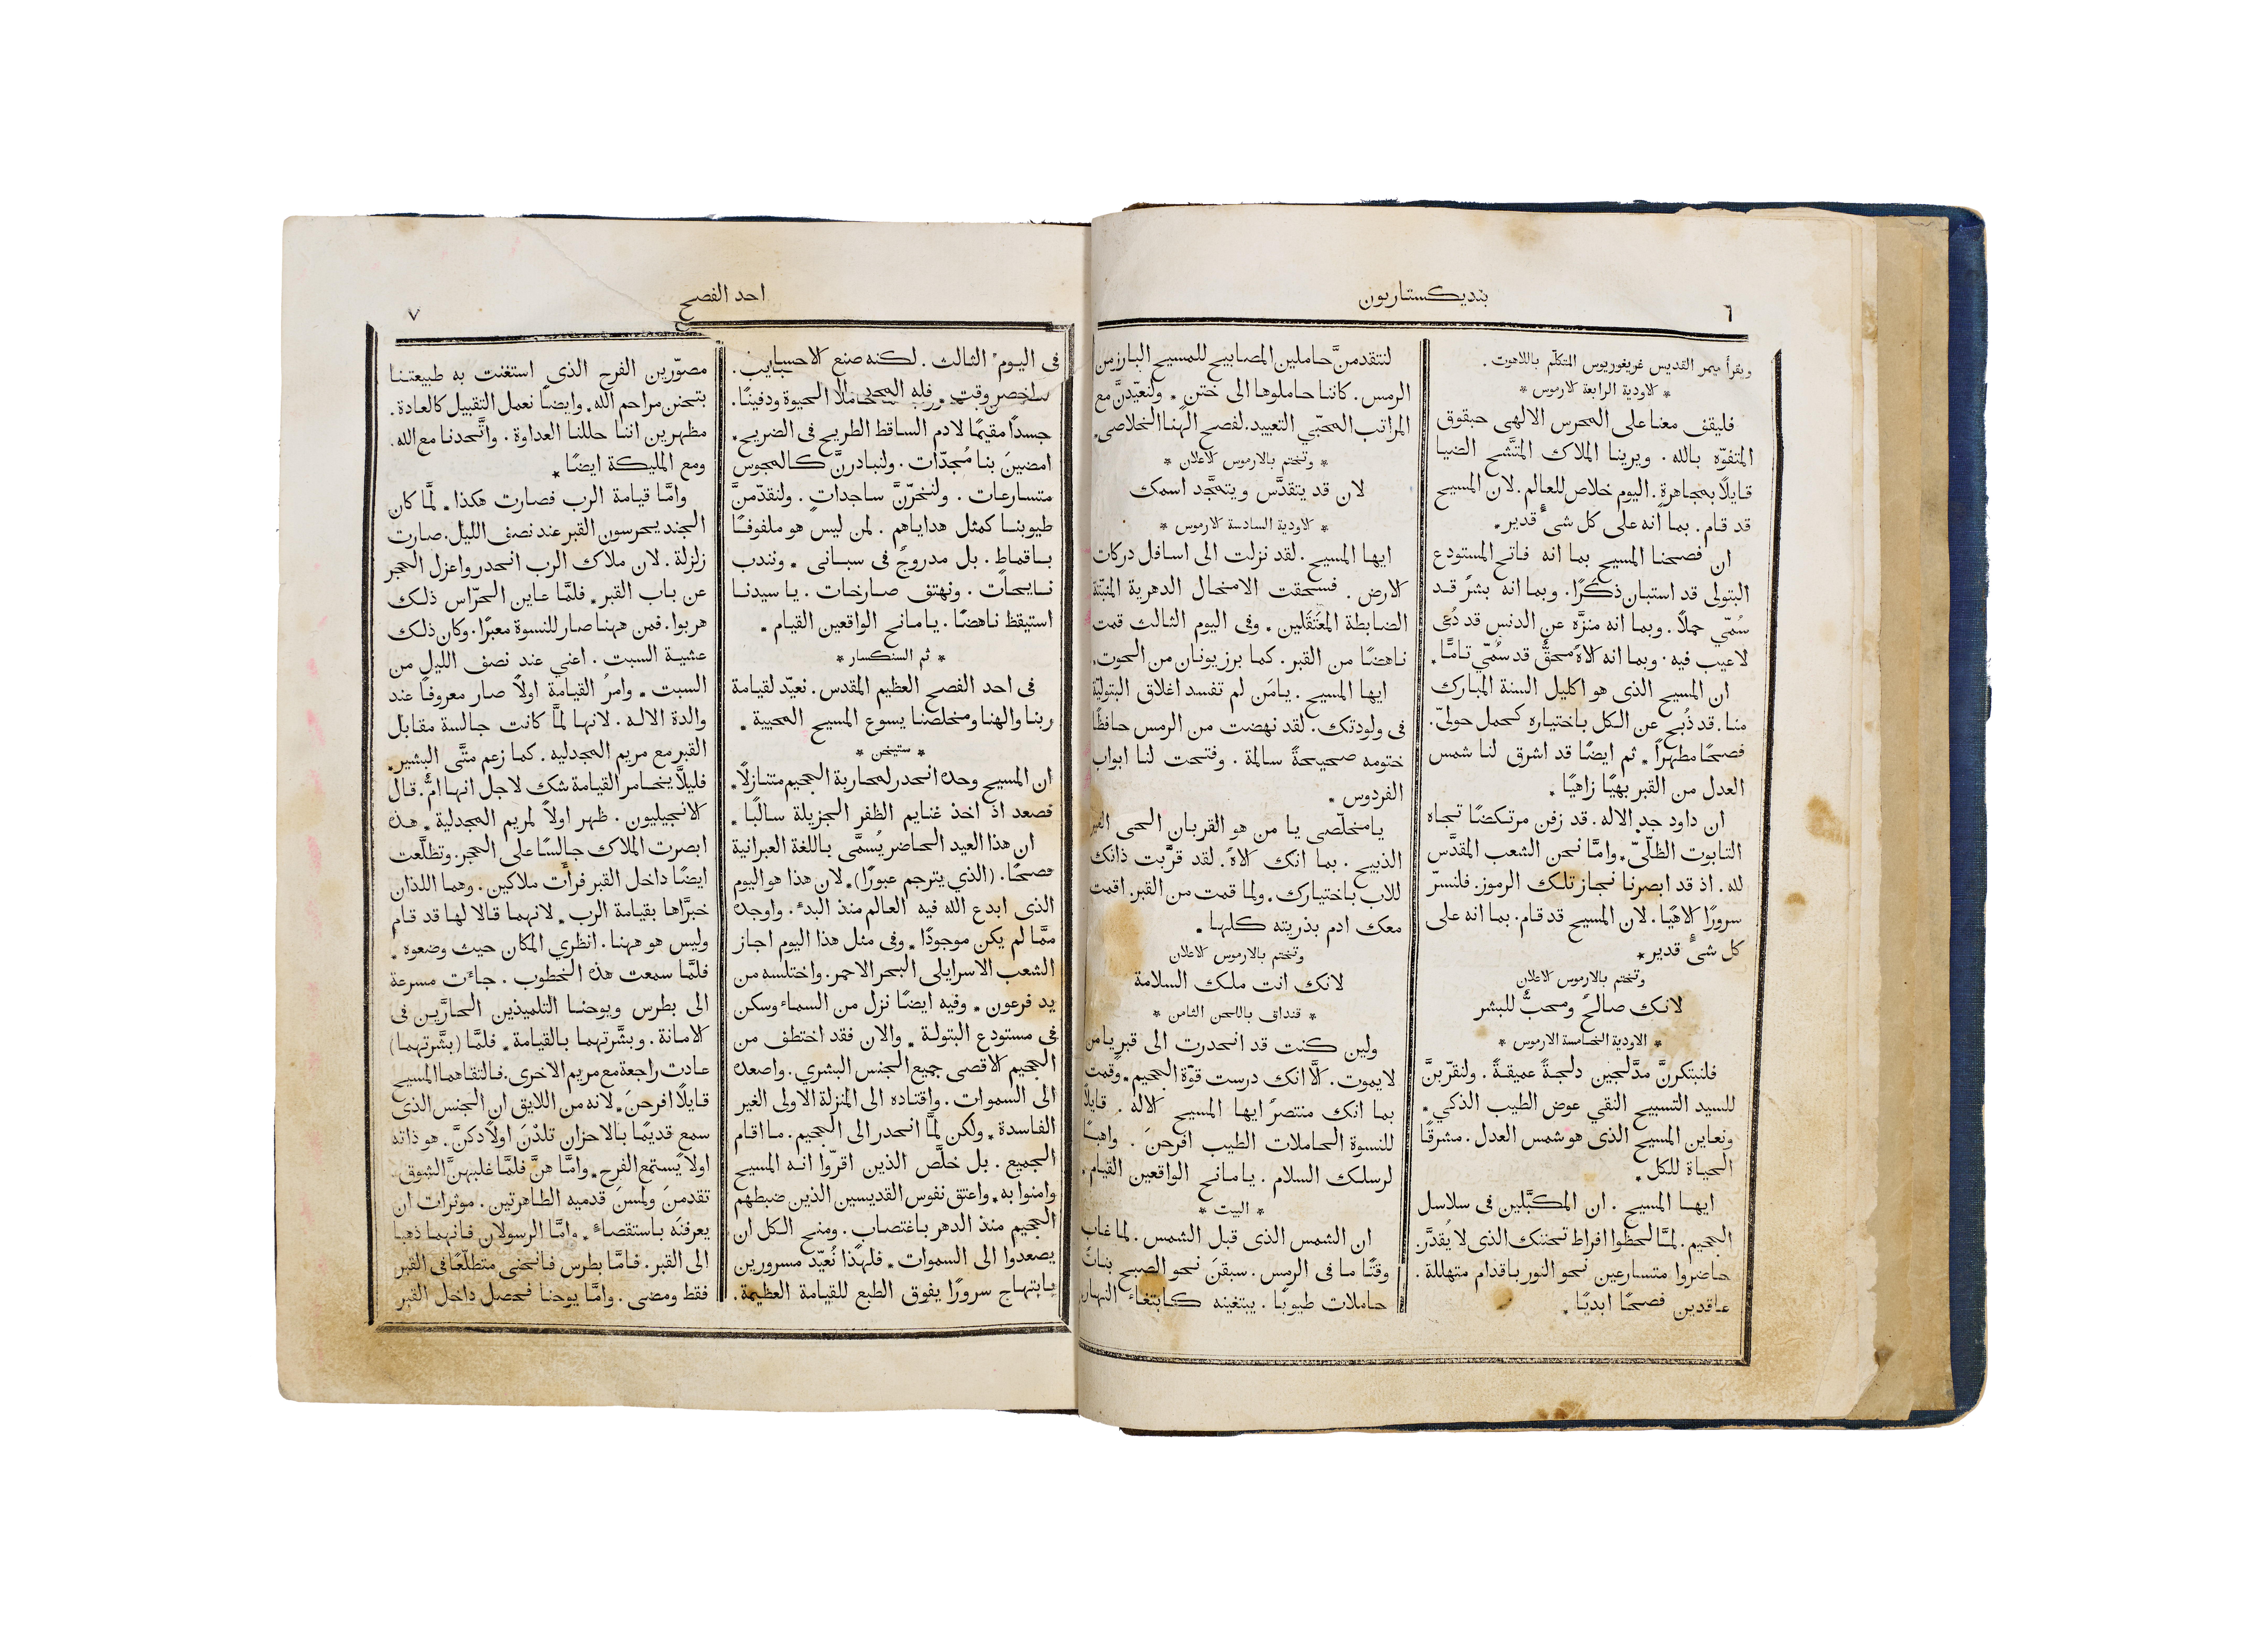 ٦
بنديكستاريون
ويقرأ ميمر القديس غريغوريوس المتكلّم باللاهوت .
* الاودية الرابعة الارموس *
فليقف معنا على المحرس الالهى حبقوق
المتفوّه بالله . ويرينا الملاك المتَّشح الضيا
قايلًا بمجاهرةٍ . اليوم خلاص للعالم . لان المسيح
قد قام . بما انه على كل شىٍ قدير *
ان فصحنا المسيح بما انه فاتح المستودع
البتولى قد استبان ذكرًا . وبما انه بشرٌ قد
سُمّي حملًا . وبما انه منزَّه عن الدنس قد دُعى
لا عيب فيه . وبما انه الاهٌ محقٌّ قد سُمّي تامًّا *
ان المسيح الذى هو اكليل السنة المبارك
منا . قد ذُبح عن الكل باختياره كحمل حولىّ .
فصحًا مطهرًا * ثم ايضًا قد اشرق لنا شمس
العدل من القبر بهيًا زاهيًا *
ان داود جد الاله . قد زفن مرتكضًا تجاه
التابوت الظلّيّ * وامَّا نحن الشعب المقدَّس
لله . اذ قد ابصرنا نجاز تلك الرموز . فلنسرّ
سرورًا الاهيًا . لان المسيح قد قام . بما انه على
كل شىٍ قدير *
وتختم بالارموس الاعلان
لانك صالحٌ ومحبٌّ للبشر
* الاودية الخامسة الارموس *
فلنبتكرنَّ مدَّلجين دلجةً عميقةً . ولنقرّبنَّ
للسيد التسبيح النقي عوض الطيب الذكي *
ونعاين المسيح الذى هو شمس العدل . مشرقًا
الحياة للكل *
ايها المسيح . ان المكبَّلين فى سلاسل
الجحيم . لمَّا لحظوا افراط تحننك الذى لا يُقدَّر .
حاضروا متسارعين نحو النور باقدام متهللة .
عاقدين فصحًا ابديًا *
لنتقدمنَّ حاملين المصابيح للمسيح البارز من
الرمس . كاننا حاملوها الى ختن * ولنعيّدنَّ مع
المراتب المحبّي التعييد . لفصح الهنا الخلاصى *
* وتختم بالارموس الاعلان *
لان قد يتقدَّس ويتمجَّد اسمك
* الاودية السادسة الارموس *
ايها المسيح . لقد نزلت الى اسافل دركات
الارض . فسحقت الامخال الدهرية المثبّتة
الضابطة المعتقَلين * وفى اليوم الثالث قمت
ناهضًا من القبر . كما برز يونان من الحوت *
ايها المسيح . يامَن لم تفسد اغلاق البتوليّة
فى ولودتك . لقد نهضت من الرمس حافظًا
ختومه صحيحةً سالمة . وفتحت لنا ابواب
الفردوس *
يا مخلّصى يا من هو القربان الحى الغير
الذبيح . بما انك الاهٌ . لقد قرَّبت ذاتك
للاب باختيارك * ولما قمت من القبر . اقمت
معك ادم بذريته كلها *
وتختم بالارموس الاعلان
لانك انت ملك السلامة
* قنداق باللحن الثامن *
ولين كنت قد انحدرت الى قبر يا من
لا يموت . الَّا انك درست قوّة الجحيم * وقمت
بما انك منتصرٌ ايها المسيح الاله . قايلًا
للنسوة الحاملات الطيب افرحنَ . واهبًا
لرسلك السلام . يا مانح الواقعين القيام *
* البيت *
ان الشمس الذى قبل الشمس . لما غاب
وقتًا ما فى الرمس . سبقنَ نحو الصبح بناتٌ
حاملات طيوبًا . يبتغينه كابتغاء النهار
احد الفصح
٧
فى اليوم الثالث . لكنه صنع
جسدًا مقيمًا لادم الساقط الطريح فى الضريح *
امضينَ بنا مُجدّات . ولنبادرنَّ كالمجوس
متسارعات . ولنخرّنَّ ساجداتٍ . ولنقدّمنَّ
طيوبنا كمثل هداياهم . لمن ليس هو ملفوفًا
باقماطٍ . بل مدروجٌ فى سبانى * ونندب
نايحات . ونهتف صارخات . يا سيدنا
استيقظ ناهضًا . يا مانح الواقعين القيام *
* ثم السنكسار *
فى احد الفصح العظيم المقدس . نعيّد لقيامة
ربنا والهنا ومخلصنا يسوع المسيح المحيية *
* ستيخن *
ان المسيح وحده انحدر لمحاربة الجحيم متنازلًا *
فصعد اذ اخذ غنايم الظفر الجزيلة سالبًا *
ان هذا العيد الحاضر يُسمَّى باللغة العبرانية
فصحًا . (الذي يترجم عبورًا) * لان هذا هو اليوم
الذى ابدع الله فيه العالم منذ البدء . واوجده
ممَّا لم يكن موجودًا * وفى مثل هذا اليوم اجاز
الشعب الاسرايلى البحر الاحمر . واختلسه من
يد فرعون * وفيه ايضًا نزل من السماء وسكن
فى مستودع البتولة * والان فقد اختطف من
الجحيم الاقصى جميع الجنس البشري . واصعده
الى السموات . واقتاده الى المنزلة الاولى الغير
الفاسدة * ولكن لمَّا انحدر الى الجحيم . ما اقام
الجميع . بل خلَّص الذين اقرّوا انه المسيح
وامنوا به * واعتق نفوس القديسين الذين ضبطهم
الجحيم منذ الدهر باغتصاب . ومنح الكل ان
يصعدوا الى السموات * فلهذا نُعيّد مسرورين
بابتهاج سرورًا يفوق الطبع للقيامة العظيمة .
مصوّرين الفرح الذى استغنت به طبيعتنا
بتحنن مراحم الله * وايضًا نعمل التقبيل كالعادة .
مظهرين اننا حللنا العداوة . واتَّحدنا مع الله .
ومع المليكة ايضًا *
وامَّا قيامة الرب فصارت هكذا * لمَّا كان
الجند يحرسون القبر عند نصف الليل . صارت
زلزلة . لان ملاك الرب انحدر واعزل الحجر
عن باب القبر * فلمَّا عاين الحرّاس ذلك
هربوا . فمن ههنا صار للنسوة معبرًا . وكان ذلك
عشية السبت . اعني عند نصف الليل من
السبت * وامرُ القيامة اولًا صار معروفًا عند
والدة الاله . لانها لمَّا كانت جالسة مقابل
القبر مع مريم المجدليه . كما زعم متَّى البشير *
فليلَّا يخامر القيامة شك لاجل انها امٌّ . قال
الانجيليون . ظهر اولًا لمريم المجدلية * هذه
ابصرت الملاك جالسًا على الحجر . وتطلَّعت
ايضًا داخل القبر فرأَت ملاكين . وهما اللذان
خبرَّاها بقيامة الرب * لانهما قالا لها قد قام
وليس هو ههنا . انظري المكان حيث وضعوه *
فلمَّا سمعت هذه الخطوب . جاءت مسرعة
الى بطرس ويوحنا التلميذين الحارَّين فى
الامانة . وبشَّرتهما بالقيامة * فلمَّا (بشَّرتهما)
عادت راجعة مع مريم الاخرى . فالتقاهما المسيح
قايلًا افرحنَ * لانه من اللايق ان الجنس الذى
سمع قديمًا بالاحزان تلدْنَ اولادكنَّ . هو ذاته
اولًا يستمع الفرح * وامَّا هنَّ فلمَّا غلبهنَّ الشوق .
تقدمنَ ولمسنَ قدميه الطاهرتين . موثرات ان
يعرفنَه باستقصاء * وامَّا الرسولان فانهما ذهبا
الى القبر . فامَّا بطرس فانحنى متطلّعًا فى القبر
فقط ومضى . وامَّا يوحنا فحصل داخل القبر